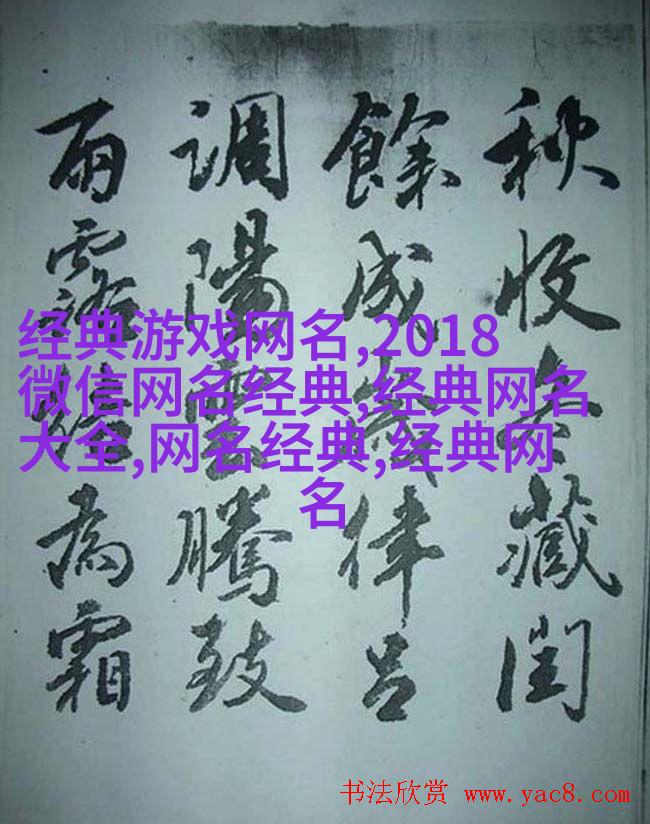 秋收冬藏閏
餘成歲律呂
調陽雲騰致
雨露結為霜
经典游戏网名,2018
微信网名经典,经典网名
大全,网名经典,经典网
名
书法欣赏 www.yac8.com